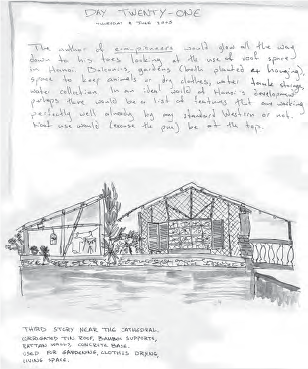 DAY TWENTY-ONE
THURSDAY 8 JUNE
The author of eco-pioneers would glow all the way
down to his toes looking at the use of roof space
in Hanoi. Balconies, gardens (both planted & hanging)
space to keep animals or dry clothes, water tank storage,
water collection. In an ideal world of Hanoi's development
perhaps there would be a list of features that are working
perfectly well already by any standard Western or not.
Roof use would (excuse the pun) be at the top.
THIRD STORY NEAR THE CATHEDRAL.
CORRUGATED TIN ROOF, BAMBOO SUPPORTS,
RATTAN WALLS, CONCRETE BASE.
USED FOR GARDENING, CLOTHES DRYING,
LIVING SPACE.